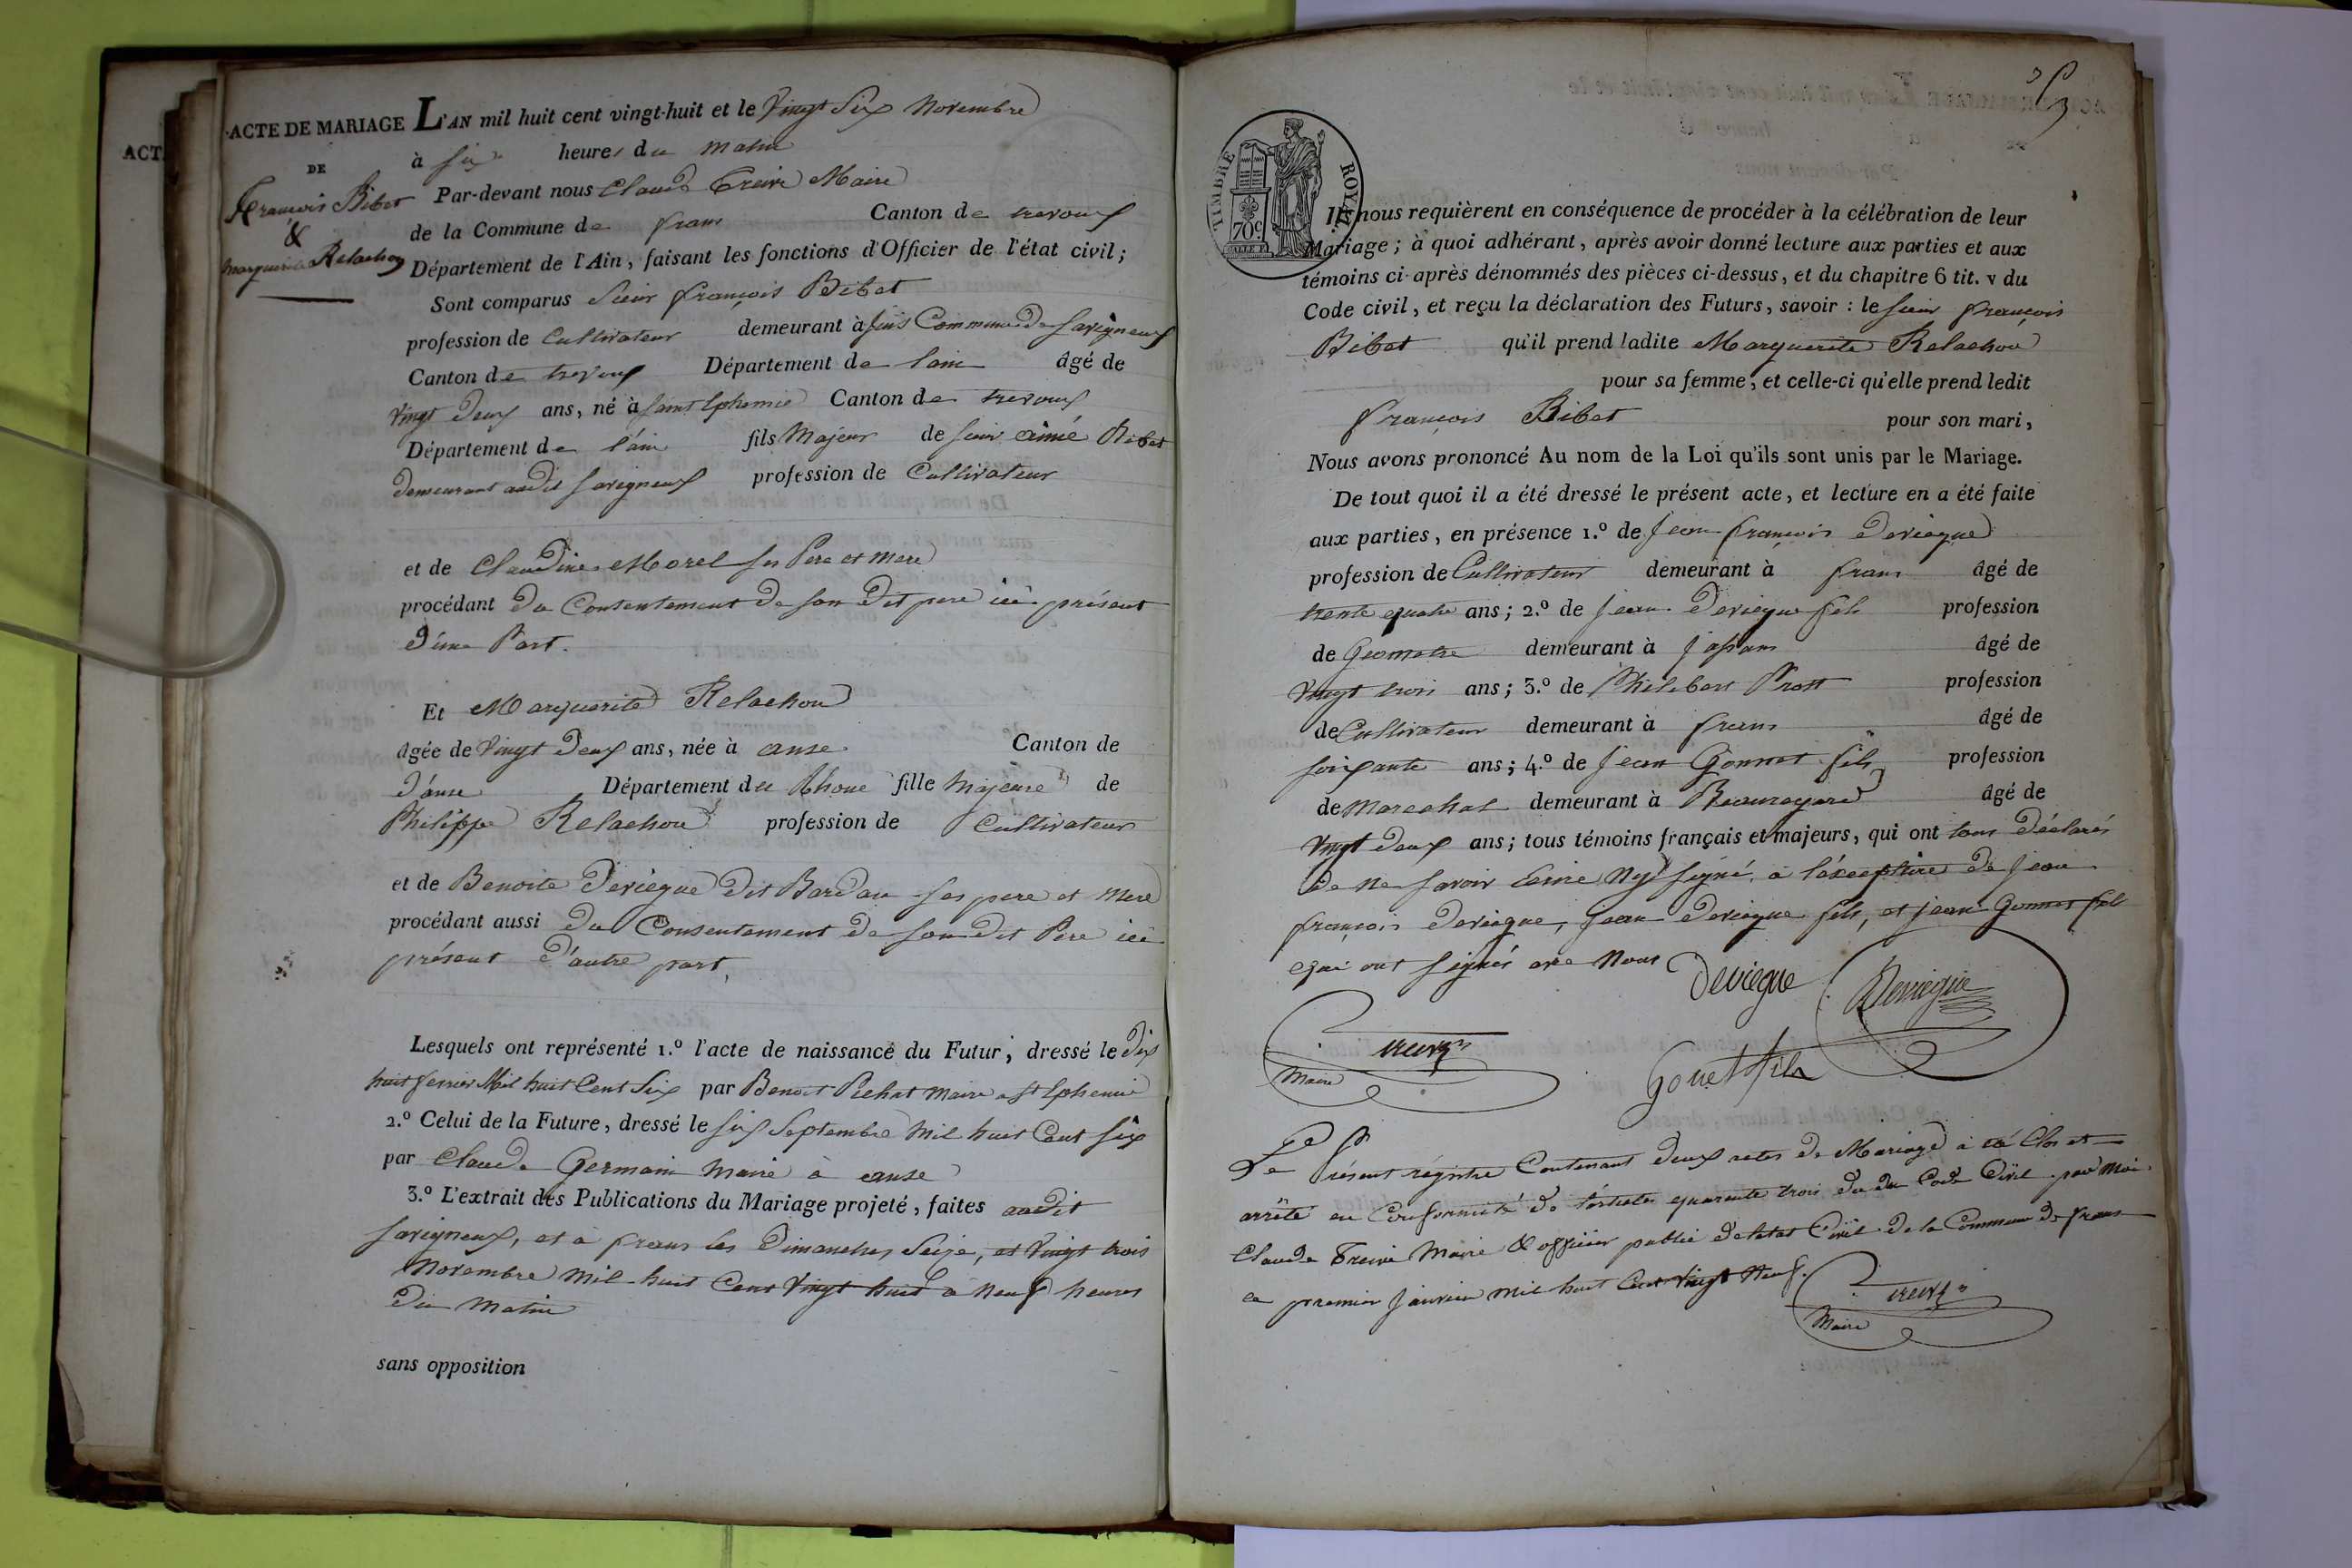 ACT
ACTE DE MARIAGE
DE
François Bibet
&
Marguerite Relachon
L'AN mil huit cent vingt-huit et le Vingt Six Novembre
à six heures du matin
Par-devant nous Claude Treive Maire
de la Commune de frans Canton de trevoux
Département de l'Ain, faisant les fonctions d'Officier de l'état civil;
Sont comparus Sieur françois Bibet
profession de Cultivateur demeurant à Juis Commune de Savigneux
Canton de trevoux Département de lain âgé de
vingt deux ans, né à saint Ephemie Canton de trevoux
Département de l'ain fils Majeur de sieur aimé Bibet
demeurant audit Savigneux profession de Cultivateur
et de Claudine Morel ses Pere et mere
procédant du Consentement de son dit pere ici présent
d'une Part.
Et Marguerite Relachon
âgée de vingt deux ans, née à anse Canton de
d'anse Département du Rhone fille Majeure de
Philippe Relachon profession de Cultivateur
et de Benoite Deviegue dit Bardau ses pere et mere
procédant aussi du Consentement de son dit Pere ici
présent d'autre part,
Lesquels ont représenté 1.º l'acte de naissance du Futur, dressé le dix
huit fevrier Mil huit Cent Six par Benoit Pichat maire a St Ephemie
2.º Celui de la Future, dressé le six Septembre Mil huit Cent six
par Claude Germain Maire à anse
3.º L'extrait des Publications du Mariage projeté, faites audit
Savigneux, et à frans les Dimanches Seize, et vingt trois
Novembre mil huit Cent Vingt huit à neuf heures
du Matin
sans opposition
TIMBRE ROYAL
70c
Ils nous requièrent en conséquence de procéder à la célébration de leur
Mariage; à quoi adhérant, après avoir donné lecture aux parties et aux
témoins ci-après dénommés des pièces ci-dessus, et du chapitre 6 tit. v du
Code civil, et reçu la déclaration des Futurs, savoir : le sieur françois
Bibet qu'il prend ladite Marguerite Relachon
pour sa femme, et celle-ci qu'elle prend ledit
françois Bibet pour son mari,
Nous avons prononcé Au nom de la Loi qu'ils sont unis par le Mariage.
De tout quoi il a été dressé le présent acte, et lecture en a été faite
aux parties, en présence 1.º de Jean françois deviegue
profession de Cultivateur demeurant à frans âgé de
trente quatre ans; 2.º de Jean deviegue fils profession
de Geometre demeurant à Jassans âgé de
Vingt trois ans; 3.º de Philibert Prost profession
de Cultivateur demeurant à frans âgé de
soixante ans; 4.º de Jean Gonnet fils profession
de Marechal demeurant à Beauregard âgé de
Vingt deux ans; tous témoins français et majeurs, qui ont tous déclarés
de ne savoir Ecrire Ny signé, à l'éxception de Jean
françois deviegue, Jean deviegue fils, et jean Gonnet fils
qui ont signés avec Nous
Deviegue Deviegue
Treive
Maire Gonet fils
Le Présent régistre Contenant deux actes de Mariage à été Clos et
arrêté en Conformité de l'article quarante trois du du Code Civil par Moi
Claude Treive Maire & officier public de l'etat Civil de la Commune de frans
ce premier Janvier mil huit Cent Vingt Neuf.
Treive
Maire